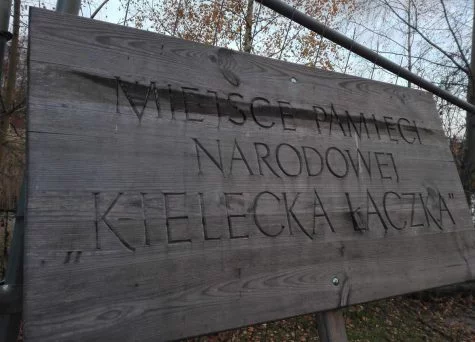 MIEJSCE PAMIĘCI
NARODOWEJ
„KIELECKA ŁĄCZKA”